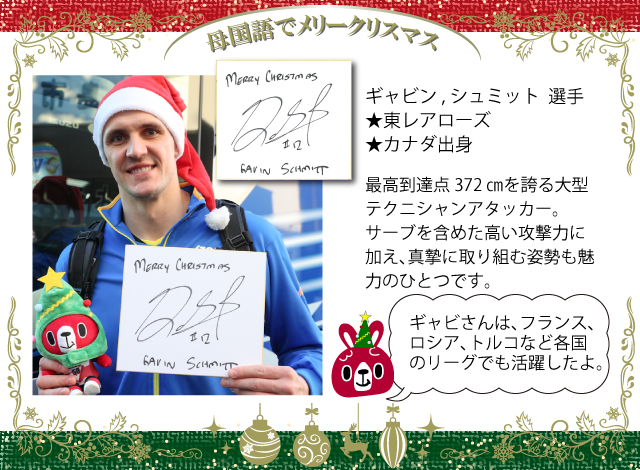 母国語でメリークリスマス
MERRY CHRISTMAS
#12
GAVIN SCHMITT
ギャビン,シュミット 選手
★東レアローズ
★カナダ出身
最高到達点 372 ㎝を誇る大型
テクニシャンアタッカー。
サーブを含めた高い攻撃力に
加え、真摯に取り組む姿勢も魅
力のひとつです。
MERRY CHRISTMAS
#12
GAVIN SCHMITT
ギャビさんは、フランス、
ロシア、トルコなど各国
のリーグでも活躍したよ。